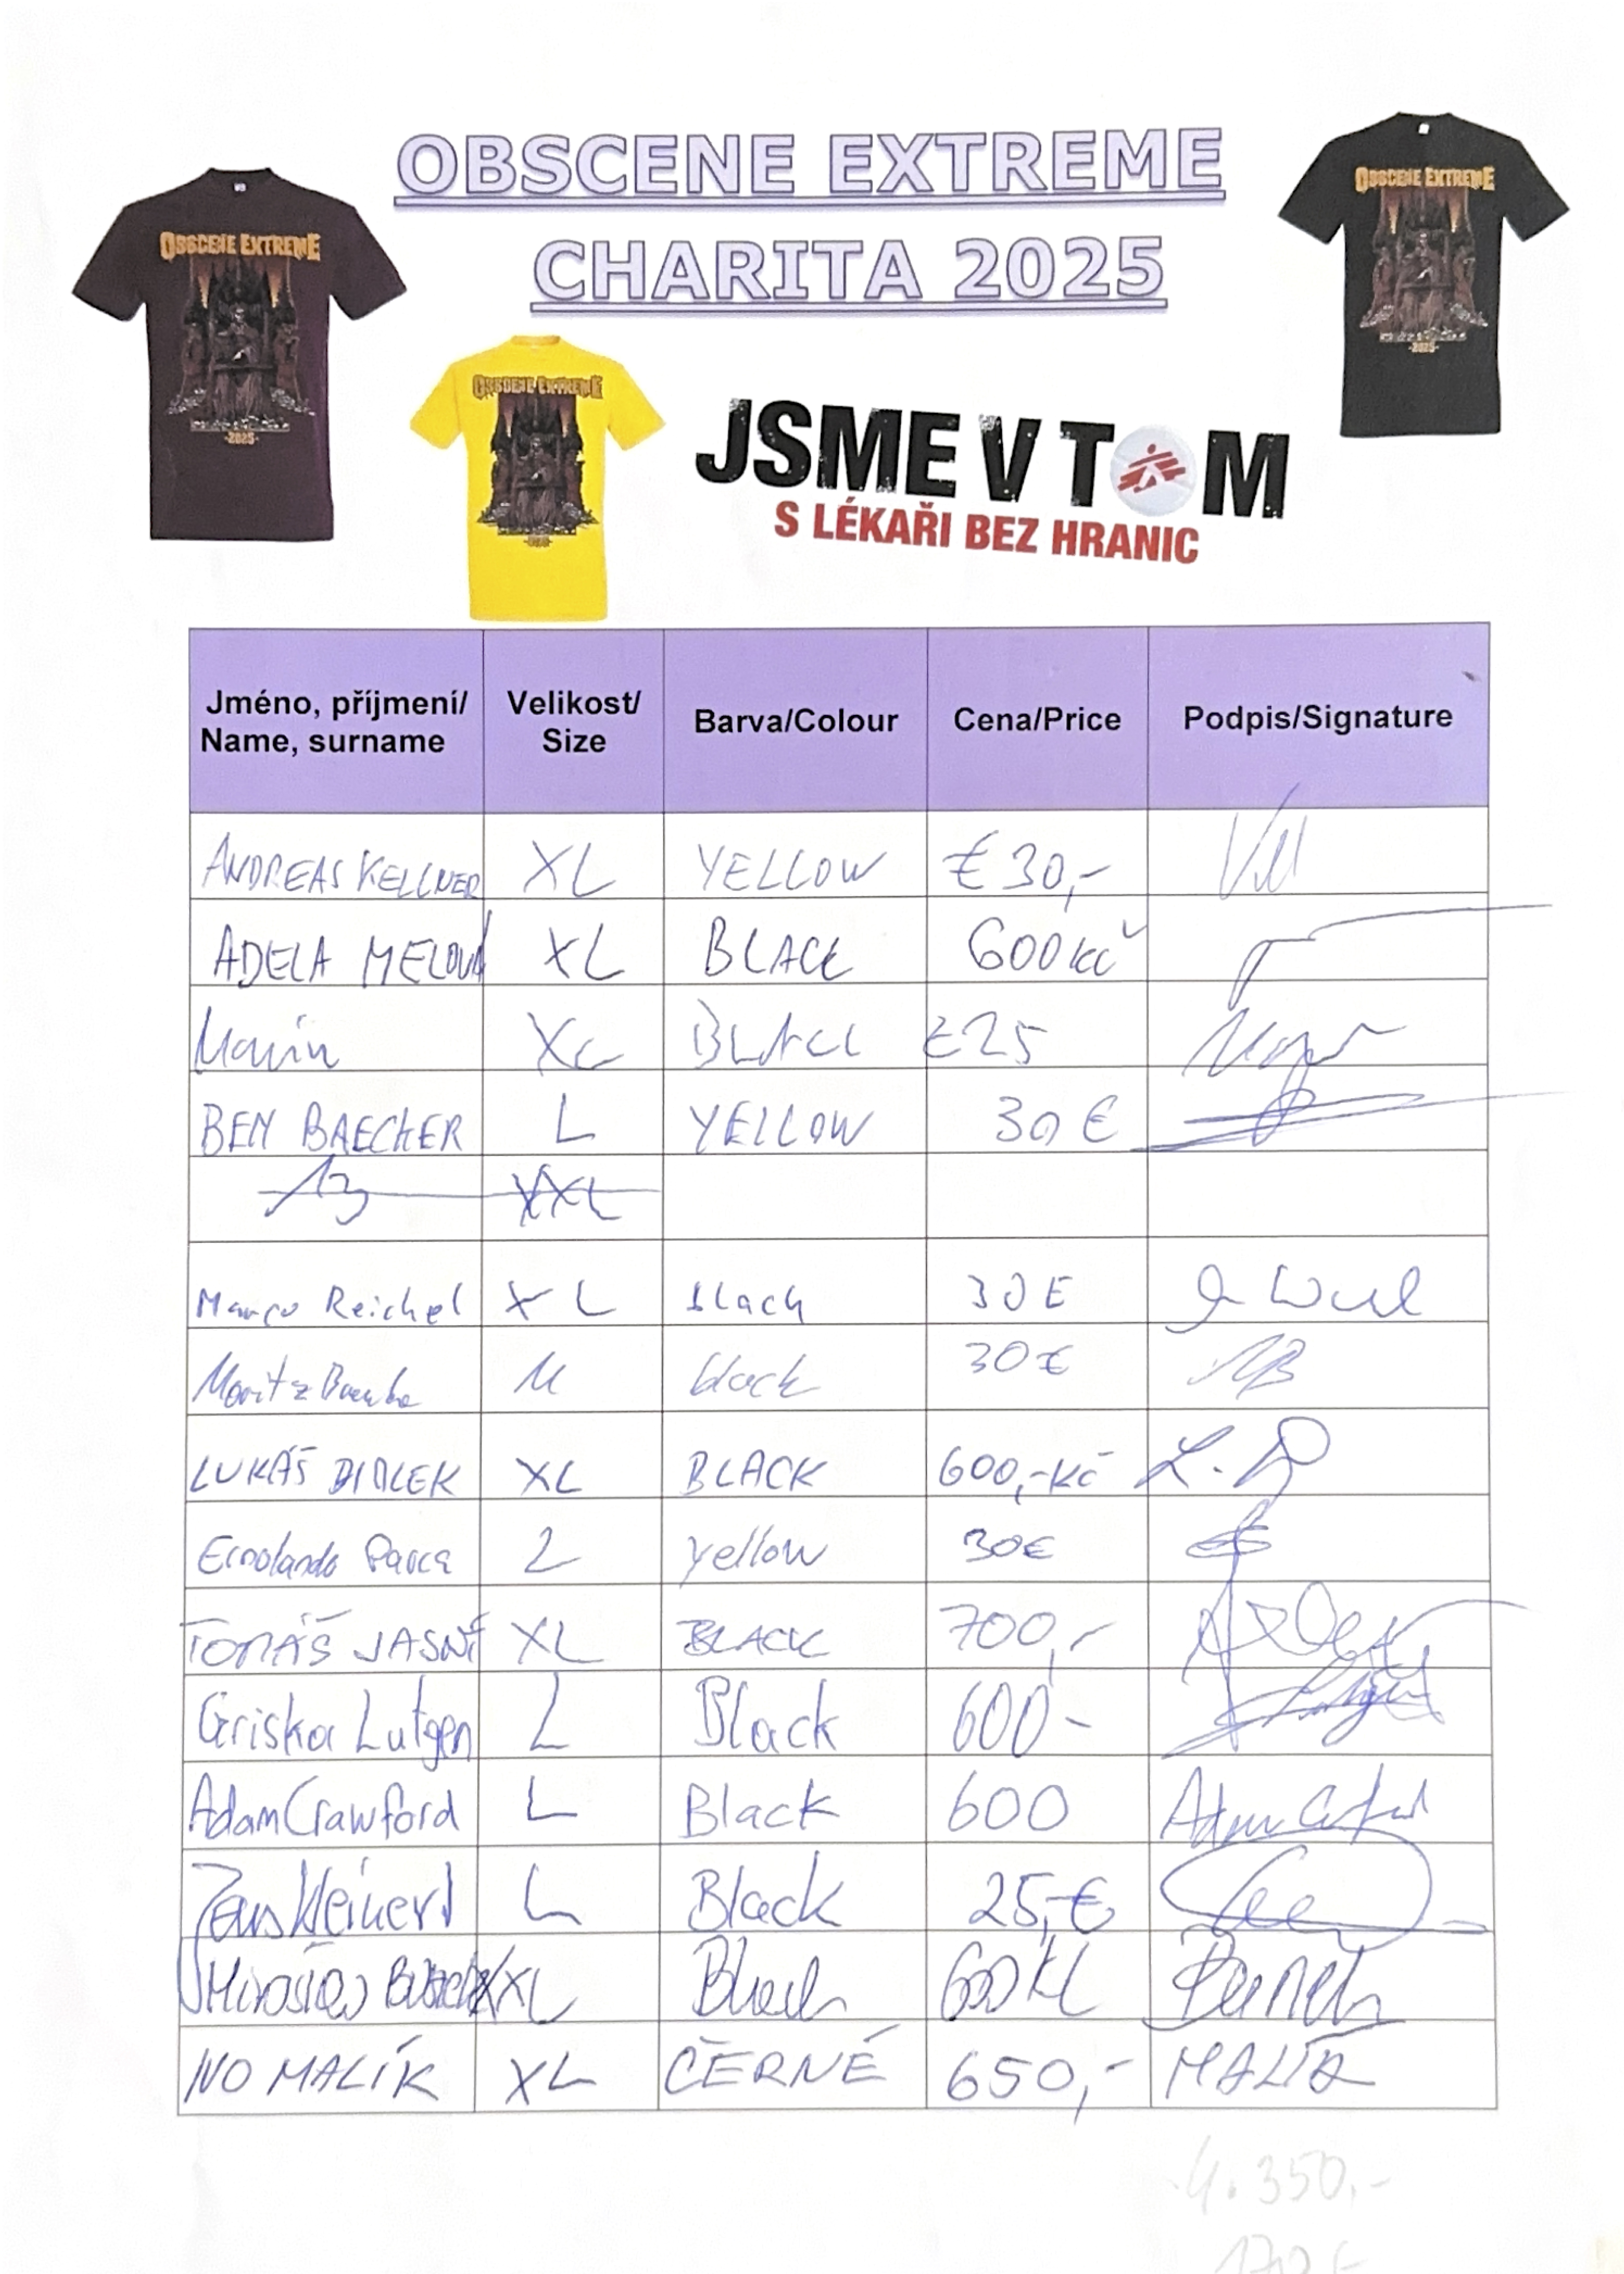 OBSCENE EXTREME
CHARITA 2025
OBSCENE EXTREME
-2025-
OBSCENE EXTREME
OBSCENE EXTREME
-2025-
JSME V TOM
S LÉKAŘI BEZ HRANIC
Jméno, příjmení/ Name, surname Velikost/ Size Barva/Colour Cena/Price Podpis/Signature
ANDREAS KELLNER XL YELLOW € 30,-
ADELA MELOUNÁ XL BLACK 600 Kč
XL BLACK €25
BEN BAECHER L YELLOW 30 €
XXL
Marco Reichel XL black 30 €
Moritz M black 30 €
LUKÁŠ XL BLACK 600,- Kč
L yellow 30€
TOMÁŠ JASNÝ XL BLACK 700,-
Griska Lutgen L Black 600-
Adam Crawford L Black 600 Adam
Kleinert L Black 25,-€
Miroslav XXL Black 600 Kč
IVO MALÍK XL ČERNÉ 650,- MALÍK
4.350,-